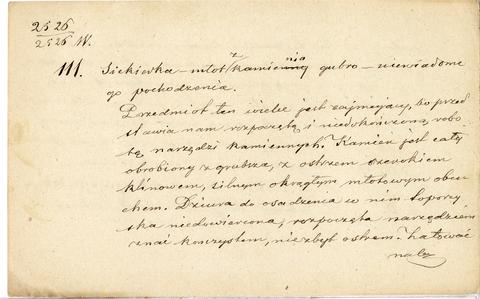 2526
2526 W.
111. Siekiewka – młot z kamienia gubro – niewiadome
go pochodzenia.
Przedmiot ten wielce jest zajmujący, bo przed
stawia nam rozpoczętą i niedokończoną robo
tę narzędzi kamiennych. Kamień jest cały
obrobiony z grubsza, z ostrzem szerokiem
klinowem, silnym okrągłym młotowym obu
chem. Dziura do osadzenia w niem toporzy
ska niedowiercona, rozpoczęta narzędziem
znać kończystem, niezbyt ostrem. Żałować
nale